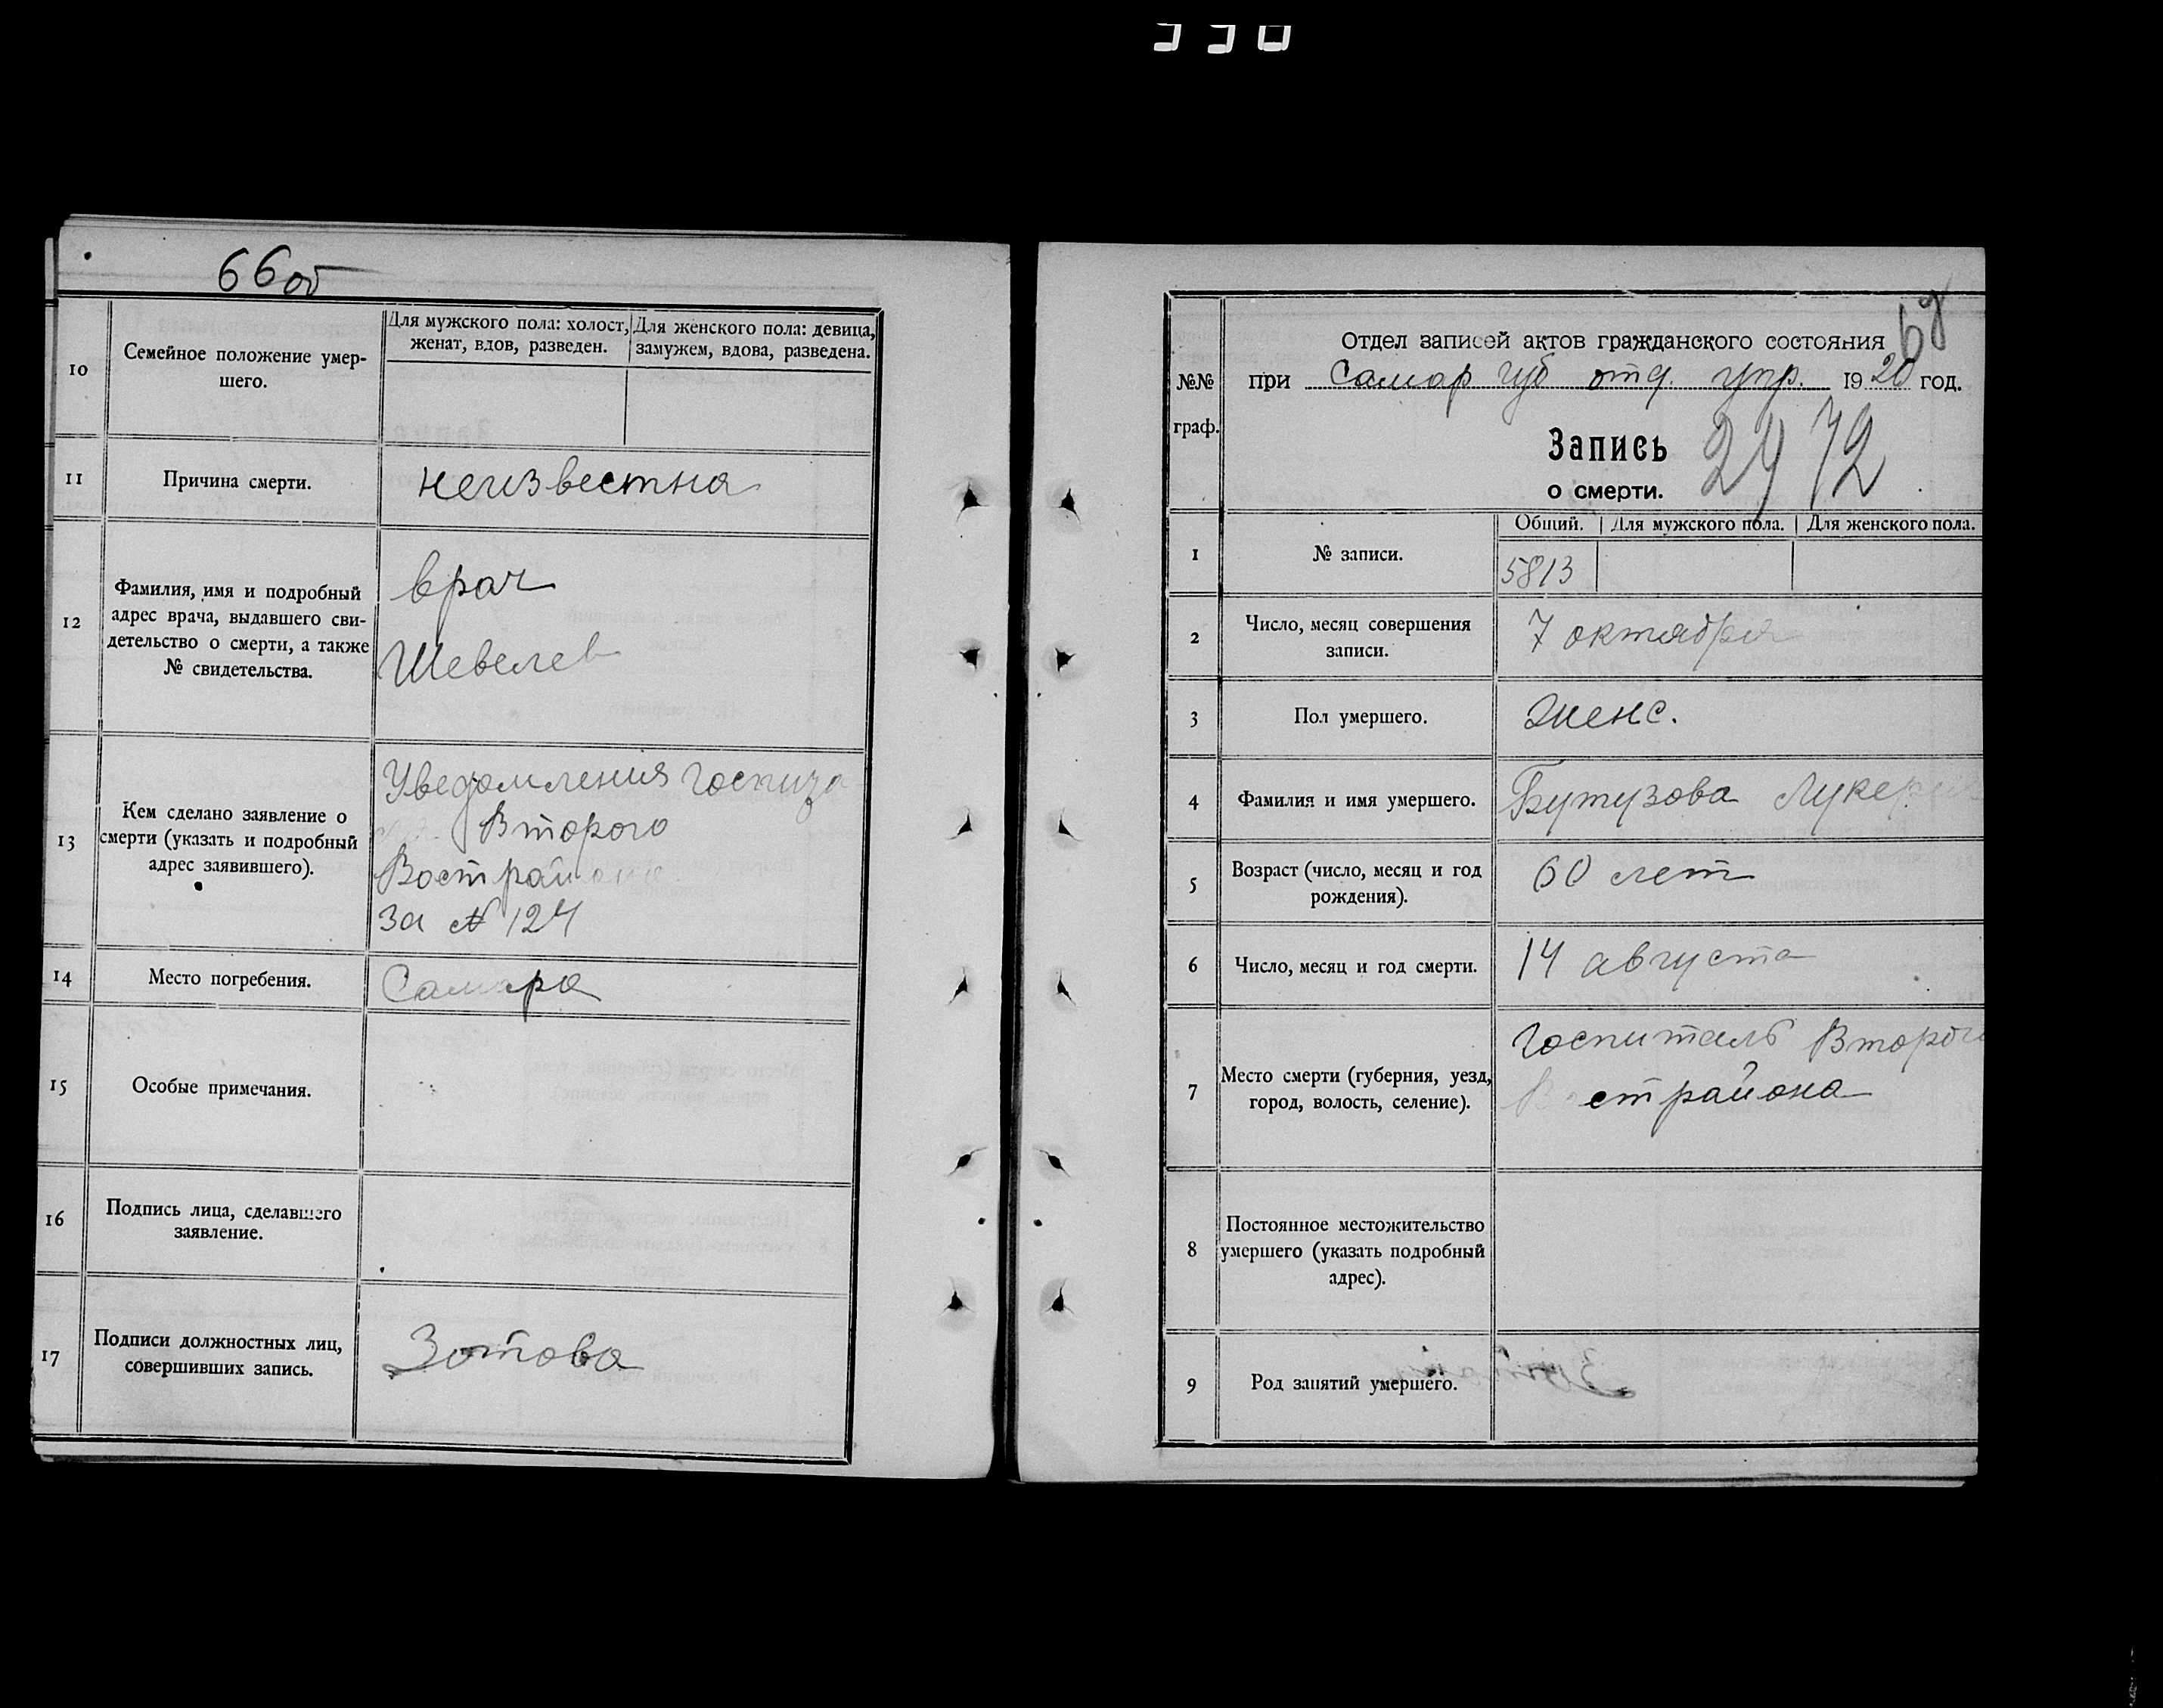 66об
10
Семейное положение умер-
шего.
Для мужского пола: холост,
женат, вдов, разведен.
Для женского пола: девица,
замужем, вдова, разведена.
11
Причина смерти.
неизвестна
12
Фамилия, имя и подробный
адрес врача, выдавшего сви-
детельство о смерти, а также
№ свидетельства.
врач
Шевелев
13
Кем сделано заявление о
смерти (указать и подробный
адрес заявившего).
Уведомления
Второго
Вострайона
за № 124
14
Место погребения.
Самара
15
Особые примечания.
16
Подпись лица, сделавшего
заявление.
17
Подписи должностных лиц,
совершивших запись.
Зотова
№№
граф.
Отдел записей актов гражданского состояния
при Самар губ отд. упр. 1920 год.
Запись
о смерти.
2472
Общий.
Для мужского пола.
Для женского пола.
1
№ записи.
5813
2
Число, месяц совершения
записи.
7 октября
3
Пол умершего.
женс.
4
Фамилия и имя умершего.
Бутузова Лукерия
5
Возраст (число, месяц и год
рождения).
60 лет
6
Число, месяц и год смерти.
14 августа
7
Место смерти (губерния, уезд,
город, волость, селение).
Госпиталь Второго
Вострайона
8
Постоянное местожительство
умершего (указать подробный
адрес).
9
Род занятий умершего.